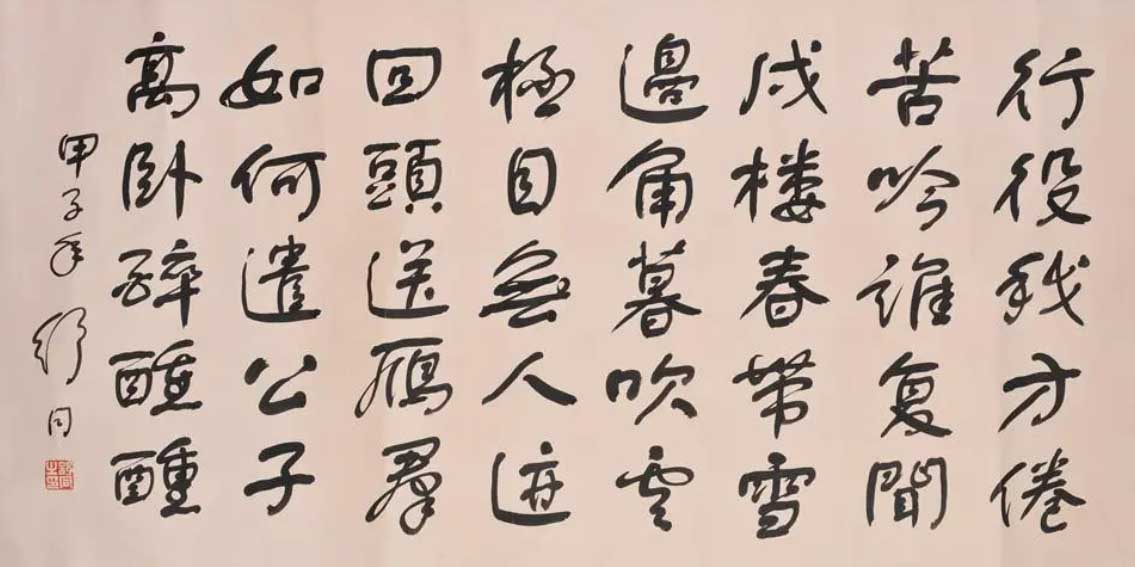 行役我方倦
苦吟誰复聞
戍楼春帶雪
邊角暮吹雲
極目無人迹
回頭送鴈羣
如何遣公子
高卧醉醺醺
甲子年 舒同
舒同之印